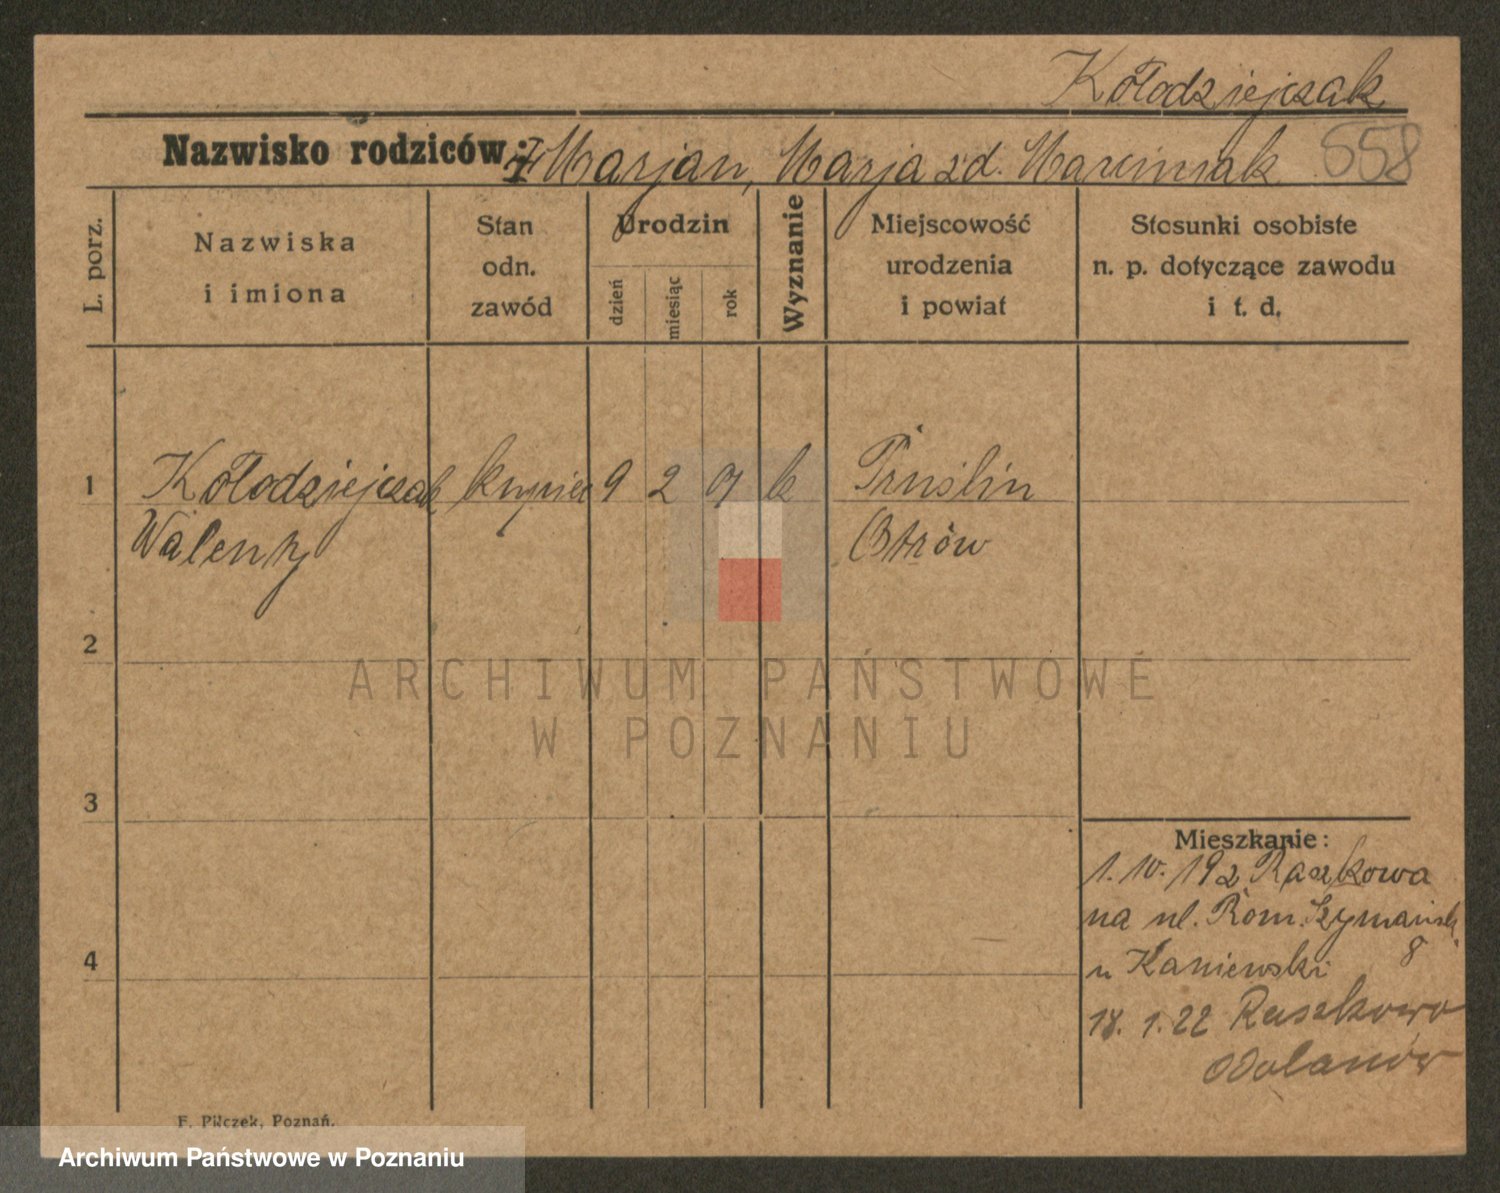 Kołodziejczak
558
Nazwisko rodziców: Marjan, Marja zd. Marciniak
L. porz.
Nazwiska
i imiona
Stan
odn.
zawód
Urodzin
dzień
miesiąc
rok
Wyznanie
Miejscowość
urodzenia
i powiat
Stosunki osobiste
n. p. dotyczące zawodu
i t. d.
1 Kołodziejczak kupiec 9 2 01 k Pruślin
Walenty Ostrów
2
ARCHIWUM PAŃSTWOWE
W POZNANIU
3
Mieszkanie:
1. IV. 192 Raszkowa
na ul. Rom. Szymańsk.
8
4
u Kaniewski
18. 1. 22 Raszkowo
Odolanów
F. Pilczek, Poznań.
Archiwum Państwowe w Poznaniu